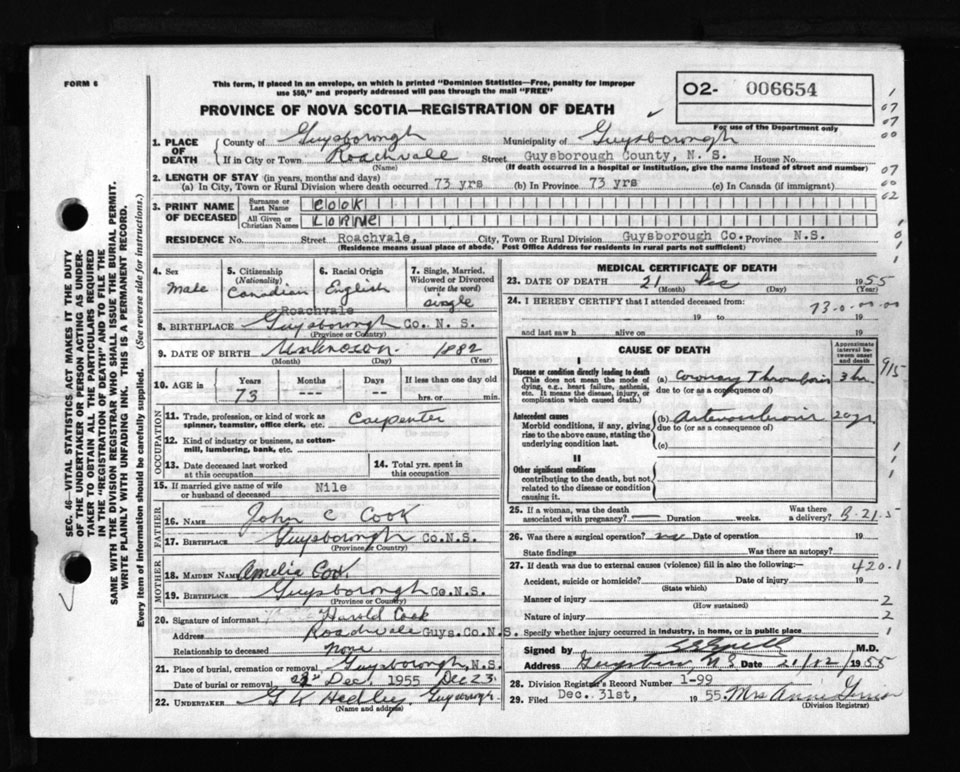 FORM 6
This form, if placed in an envelope, on which is printed "Dominion Statistics—Free, penalty for improper
use $50," and properly addressed will pass through the mail "FREE"
PROVINCE OF NOVA SCOTIA—REGISTRATION OF DEATH
O2- 006654
For use of the Department only
1. PLACE OF DEATH
County of Guysborough Municipality of Guysborough
If in City or Town Roachvale Street Guysborough County, N. S. House No.
(Name) (If death occurred in a hospital or institution, give the name instead of street and number)
2. LENGTH OF STAY (in years, months and days)
(a) In City, Town or Rural Division where death occurred 73 yrs (b) In Province 73 yrs (c) In Canada (if immigrant)
3. PRINT NAME OF DECEASED
Surname or Last Name COOK
All Given or Christian Names LORNE
RESIDENCE No. Street Roachvale, City, Town or Rural Division Guysborough Co. Province N.S.
(Residence means usual place of abode. Post Office Address for residents in rural parts not sufficient)
4. Sex
Male
5. Citizenship (Nationality)
Canadian
6. Racial Origin
English
7. Single, Married, Widowed or Divorced (write the word)
single
Roachvale
8. BIRTHPLACE Guysborough Co. N. S.
(Province or Country)
9. DATE OF BIRTH Unknown 1882
(Month) (Day) (Year)
10. AGE in
Years Months Days If less than one day old
73 --- -- hrs. or min.
OCCUPATION
11. Trade, profession, or kind of work as spinner, teamster, office clerk, etc. Carpenter
12. Kind of industry or business, as cotton-mill, lumbering, bank, etc.
13. Date deceased last worked at this occupation
14. Total yrs. spent in this occupation
15. If married give name of wife or husband of deceased Nile
FATHER
16. NAME John C Cook
17. BIRTHPLACE Guysborough Co.N.S.
(Province or Country)
MOTHER
18. MAIDEN NAME Amelia Cook
19. BIRTHPLACE Guysborough Co.N.S.
(Province or Country)
20. Signature of informant Harold Cook
Address Roachvale Guys.Co.N.S.
Relationship to deceased none
21. Place of burial, cremation or removal Guysborough, N.S.
Date of burial or removal Dec. 1955 Dec 23
22. UNDERTAKER Guysborough
(Name and address)
MEDICAL CERTIFICATE OF DEATH
23. DATE OF DEATH 21 Dec 1955
(Month) (Day) (Year)
24. I HEREBY CERTIFY that I attended deceased from:
73-0-00-00
19 to 19
and last saw h alive on 19
CAUSE OF DEATH
Approximate interval between onset and death
I
Disease or condition directly leading to death
(This does not mean the mode of dying, e.g., heart failure, asthenia, etc. It means the disease, injury, or complication which caused death.)
(a) Coronary Thrombosis 3 hr.
due to (or as a consequence of)
915
Antecedent causes
Morbid conditions, if any, giving rise to the above cause, stating the underlying condition last.
(b) 20 yr.
due to (or as a consequence of)
(c)
II
Other significant conditions
contributing to the death, but not related to the disease or condition causing it.
25. If a woman, was the death associated with pregnancy? Duration weeks. Was there a delivery?
26. Was there a surgical operation? Date of operation 19
State findings Was there an autopsy?
27. If death was due to external causes (violence) fill in also the following:—
420.1
Accident, suicide or homicide? Date of injury 19
(State which)
Manner of injury 2
(How sustained)
Nature of injury 2
Specify whether injury occurred in industry, in home, or in public place 1
Signed by M.D.
Address N S Date 21/12/1955
28. Division Registrar's Record Number 1-99
29. Filed Dec. 31st, 1955 Mrs Anne
(Division Registrar)
SEC. 46—VITAL STATISTICS ACT MAKES IT THE DUTY
OF THE UNDERTAKER OR PERSON ACTING AS UNDER-
TAKER TO OBTAIN ALL THE PARTICULARS REQUIRED
IN THE "REGISTRATION OF DEATH" AND TO FILE THE
SAME WITH THE DIVISION REGISTRAR WHO SHALL ISSUE THE BURIAL PERMIT.
WRITE PLAINLY WITH UNFADING INK. THIS IS A PERMANENT RECORD.
Every item of information should be carefully supplied. (See reverse side for instructions.)